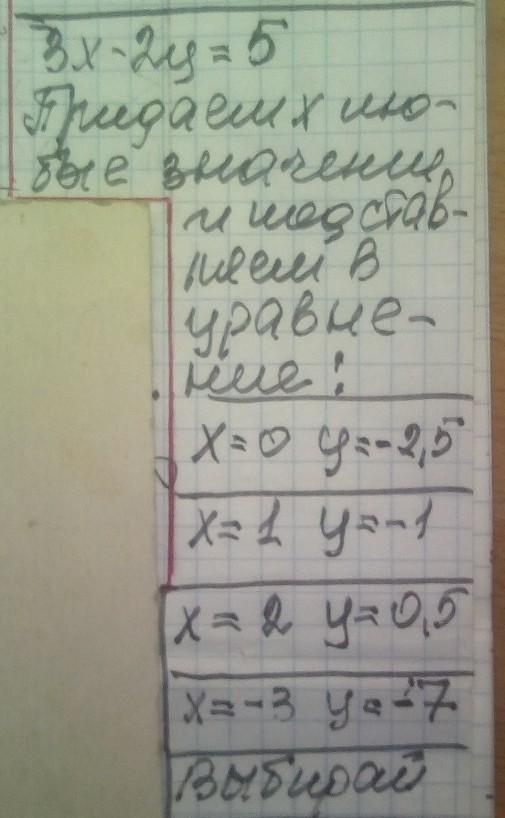 3x-2y=5
Придаем x лю-
бые значения
и подстав-
ляем в
уравне-
ние:
x=0 y=-2,5
x=1 y=-1
x=2 y=0,5
x=-3 y=-7
Выбирай